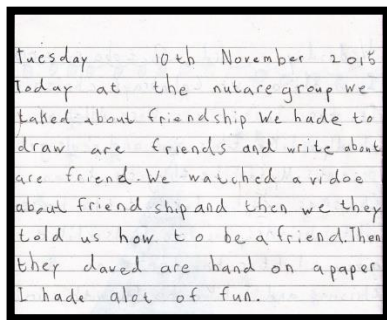 Tuesday 10th November 2015
Today at the nutare group we
talked about friendship We hade to
draw are friends and write about
are friend. We watched a vidoe
about friend ship and then we they
told us how to be a friend. Then
they daved are hand on a paper
I hade alot of fun.